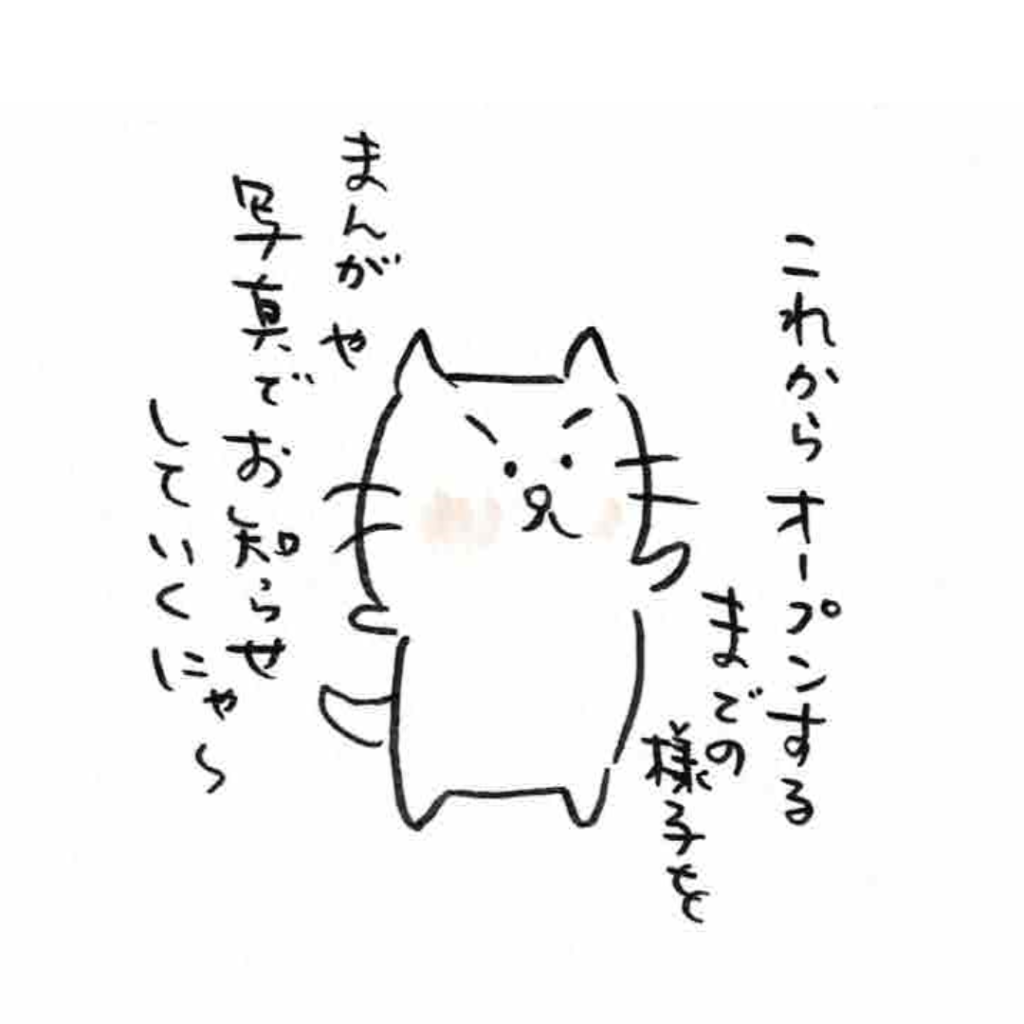 これからオープンする
までの
様子を
まんがや
写真でお知らせ
していくにゃ〜